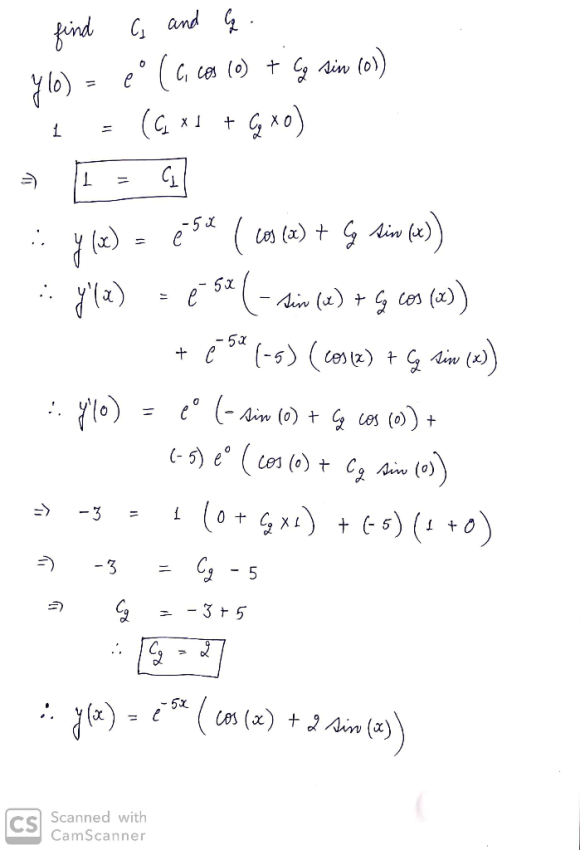 find C₁ and C₂.
y(0) = e⁰ (C₁ cos (0) + C₂ sin (0))
1 = (C₁ × 1 + C₂ × 0)
⇒ 1 = C₁
∴ y(x) = e⁻⁵ˣ ( cos (x) + C₂ sin (x))
∴ y'(x) = e⁻⁵ˣ (- sin (x) + C₂ cos (x))
+ e⁻⁵ˣ (-5) ( cos (x) + C₂ sin (x))
∴ y'(0) = e⁰ (- sin (0) + C₂ cos (0)) +
(-5) e⁰ ( cos (0) + C₂ sin (0))
⇒ -3 = 1 (0 + C₂ × 1) + (-5) (1 + 0)
⇒ -3 = C₂ - 5
⇒ C₂ = -3 + 5
∴ C₂ = 2
∴ y(x) = e⁻⁵ˣ ( cos (x) + 2 sin (x))
CS Scanned with
CamScanner